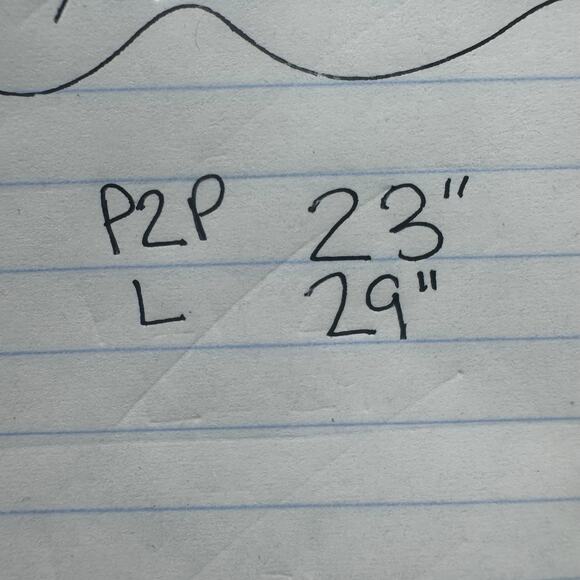 P2P 23"
L 29"